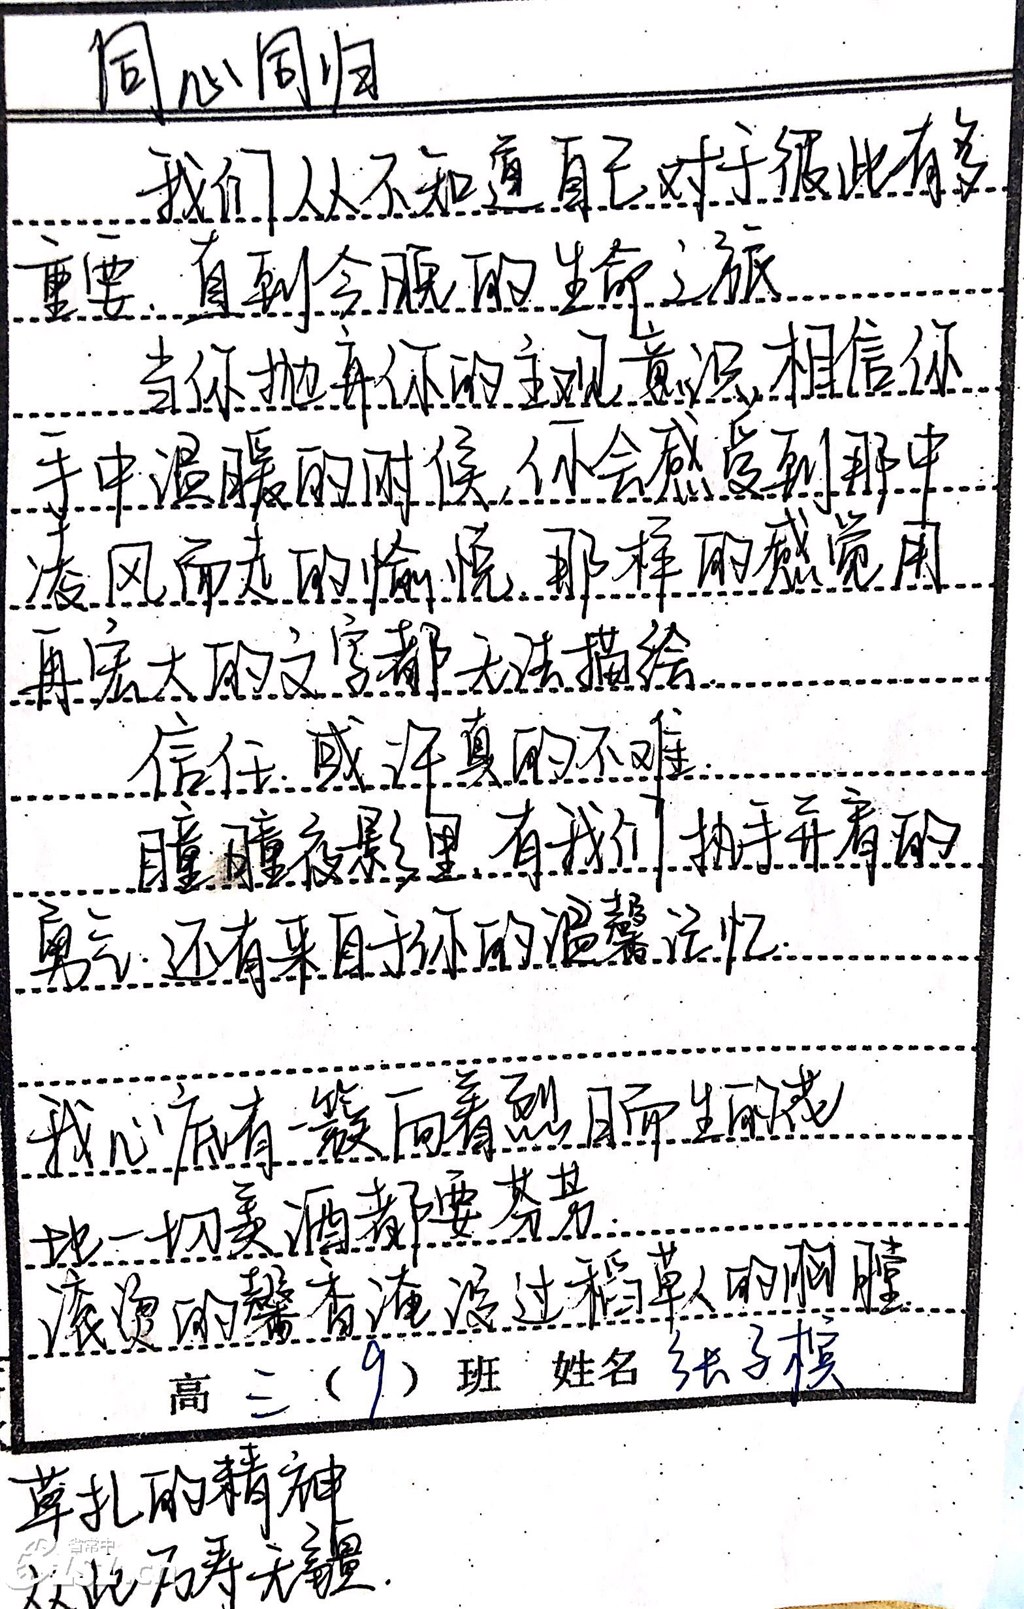 同心同归
我们从不知道自己对于彼此有多
重要.直到今晚的生命之旅
当你抛弃你的主观意识,相信你
手中温暖的时候,你会感受到那中
凌风而走的愉悦.那样的感觉用
再宏大的文字都无法描绘.
信任.或许真的不难.
瞳瞳夜影里,有我们执手并肩的
勇气.还有来自于你的温馨记忆.
我心底有一簇向着烈日而生的花
比一切美酒都要芬芳.
滚烫的馨香淹没过稻草人的胸膛
高三(9)班 姓名 张子槟
草扎的精神
从此万寿无疆.
省常中